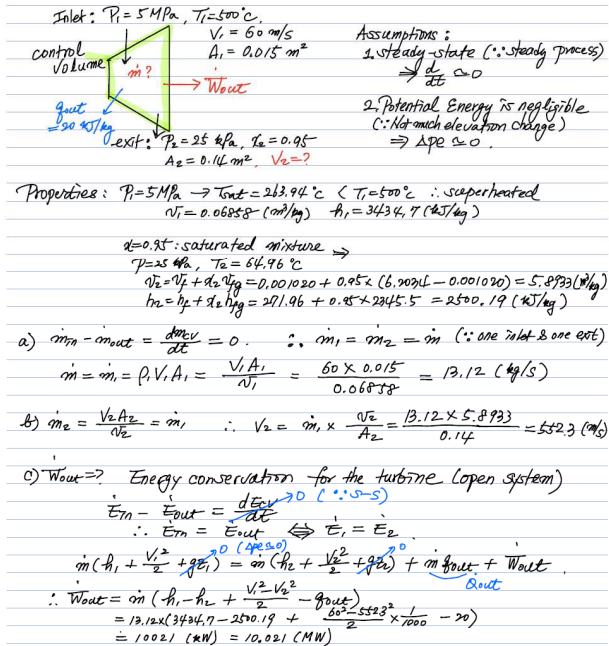 Inlet: P₁ = 5 MPa, T₁ = 500°C.
V₁ = 60 m/s
A₁ = 0.015 m²
control volume
ṁ?
Ẇout
qout = 20 kJ/kg
exit: P₂ = 25 kPa, x₂ = 0.95
A₂ = 0.14 m², V₂ = ?
Assumptions:
1. steady-state (∵ steady process)
⇒ d/dt ≃ 0
2. Potential Energy is negligible
(∵ Not much elevation change)
⇒ Δpe ≃ 0.
Properties: P₁ = 5 MPa → Tsat = 263.94°C < T₁ = 500°C ∴ superheated
v₁ = 0.06858 (m³/kg) h₁ = 3434.7 (kJ/kg)
x = 0.95: saturated mixture ⇒
P = 25 kPa, T₂ = 64.96°C
v₂ = vf + x₂ vfg = 0.001020 + 0.95 × (6.2034 − 0.001020) = 5.8933 (m³/kg)
h₂ = hf + x₂ hfg = 271.96 + 0.95 × 2345.5 = 2500.19 (kJ/kg)
a) ṁin − ṁout = dmcv/dt = 0. ∴ ṁ₁ = ṁ₂ = ṁ (∵ one inlet & one exit)
ṁ = ṁ₁ = ρ₁V₁A₁ = V₁A₁/v₁ = 60 × 0.015/0.06858 = 13.12 (kg/s)
b) ṁ₂ = V₂A₂/v₂ = ṁ₁ ∴ V₂ = ṁ₁ × v₂/A₂ = 13.12 × 5.8933/0.14 = 552.3 (m/s)
c) Ẇout = ? Energy conservation for the turbine (open system)
Ėin − Ėout = dEcv/dt → 0 (∵ s-s)
∴ Ėin = Ėout ⇔ Ė₁ = Ė₂
ṁ(h₁ + V₁²/2 + gz₁) → 0 (Δpe≃0) = ṁ(h₂ + V₂²/2 + gz₂) → 0 + ṁ qout + Ẇout.
Q̇out
∴ Ẇout = ṁ (h₁ − h₂ + V₁² − V₂²/2 − qout)
= 13.12 × (3434.7 − 2500.19 + 60² − 552.3²/2 × 1/1000 − 20)
= 10021 (kW) = 10.021 (MW)